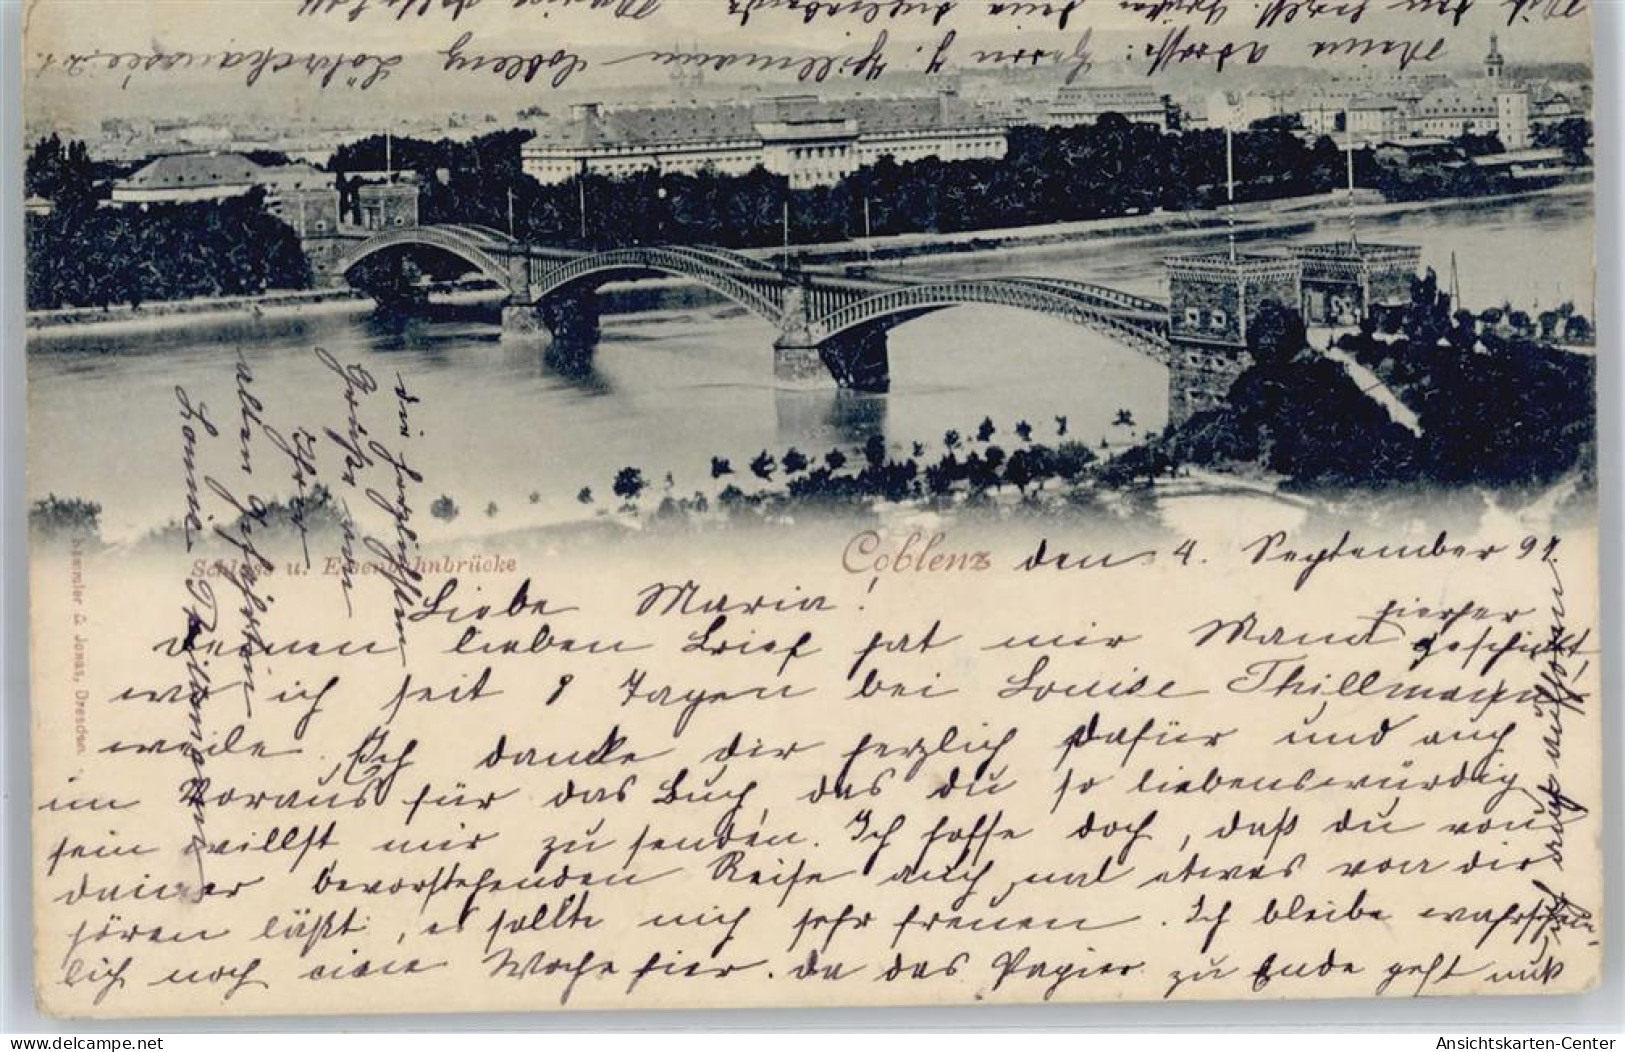 Coblenz den 4. September 97.
Schloss u. Eisenbahnbrücke
Liebe Maria!
Deinen lieben Brief hat mir Mama hierher geschickt,
wo ich seit 8 Tagen bei Louise Thillmann
weile. Ich danke dir herzlich dafür und auch
im Voraus für das Buch, das du so liebenswürdig
sein willst mir zu senden. Ich hoffe doch, daß du von
deiner bevorstehenden Reise auch mal etwas von dir
hören läßt, es sollte mich sehr freuen. Ich bleibe wahrschein-
lich noch eine Woche hier. Da das Papier zu Ende geht muß
ich nun aufhören
Meine Adresse: Coblenz Löhrchaussee
die herzlichsten
Grüße von
Ihrer
alten Gefährtin
Louise Thillmann
Stengel & Jonas, Dresden
Ansichtskarten-Center
delcampe.net